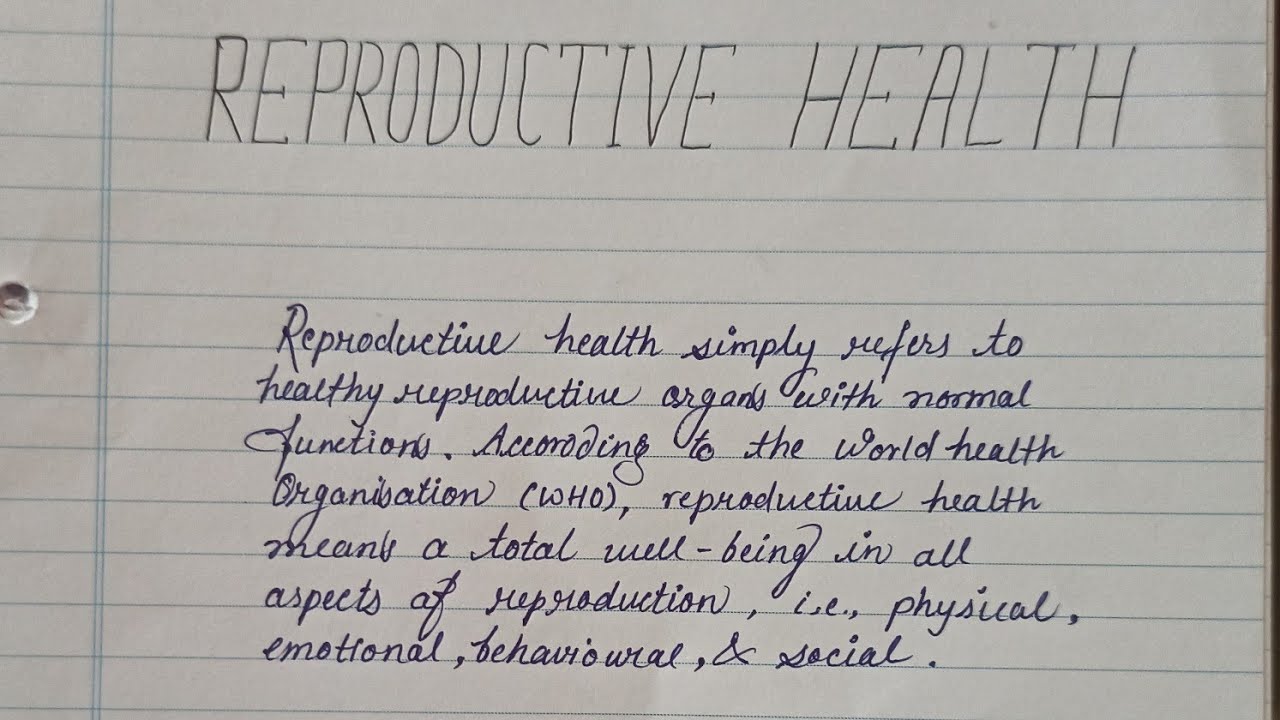 REPRODUCTIVE HEALTH
Reproductive health simply refers to
healthy reproductive organs with normal
functions. According to the world health
Organisation (WHO), reproductive health
means a total well-being in all
aspects of reproduction, i.e., physical,
emotional, behavioural, & social.